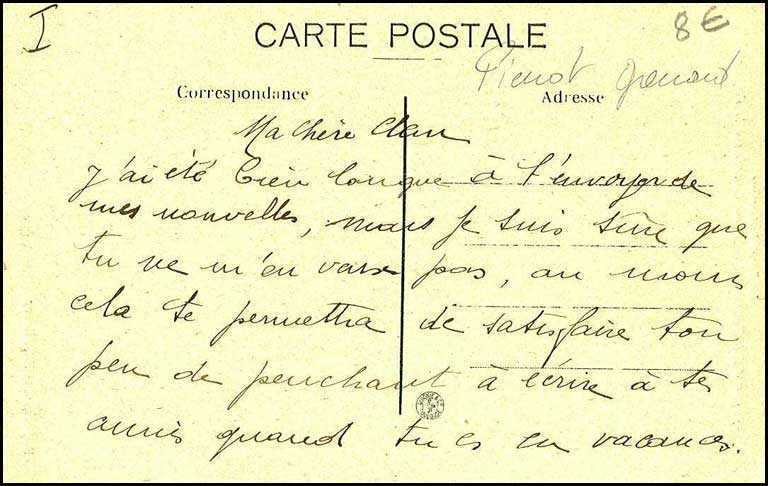 I
8€
CARTE POSTALE
Pierrot
Correspondance
Adresse
Ma chère Clau
j'ai été bien longue à t'envoyer de
mes nouvelles, mais je suis sûre que
tu ne m'en veux pas, au moins
cela te permettra de satisfaire ton
peu de penchant à écrire à tes
amis quand tu es en vacances.